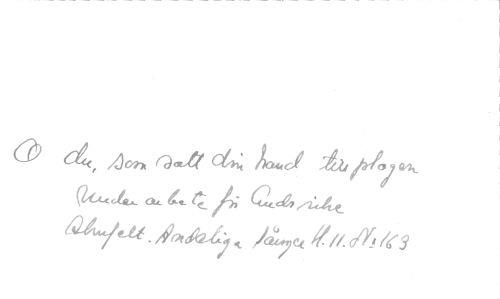 O du, som satt din hand till plogen
under arbete för Guds rike
Ahnfelt. Andeliga sånger H. 11. No 163